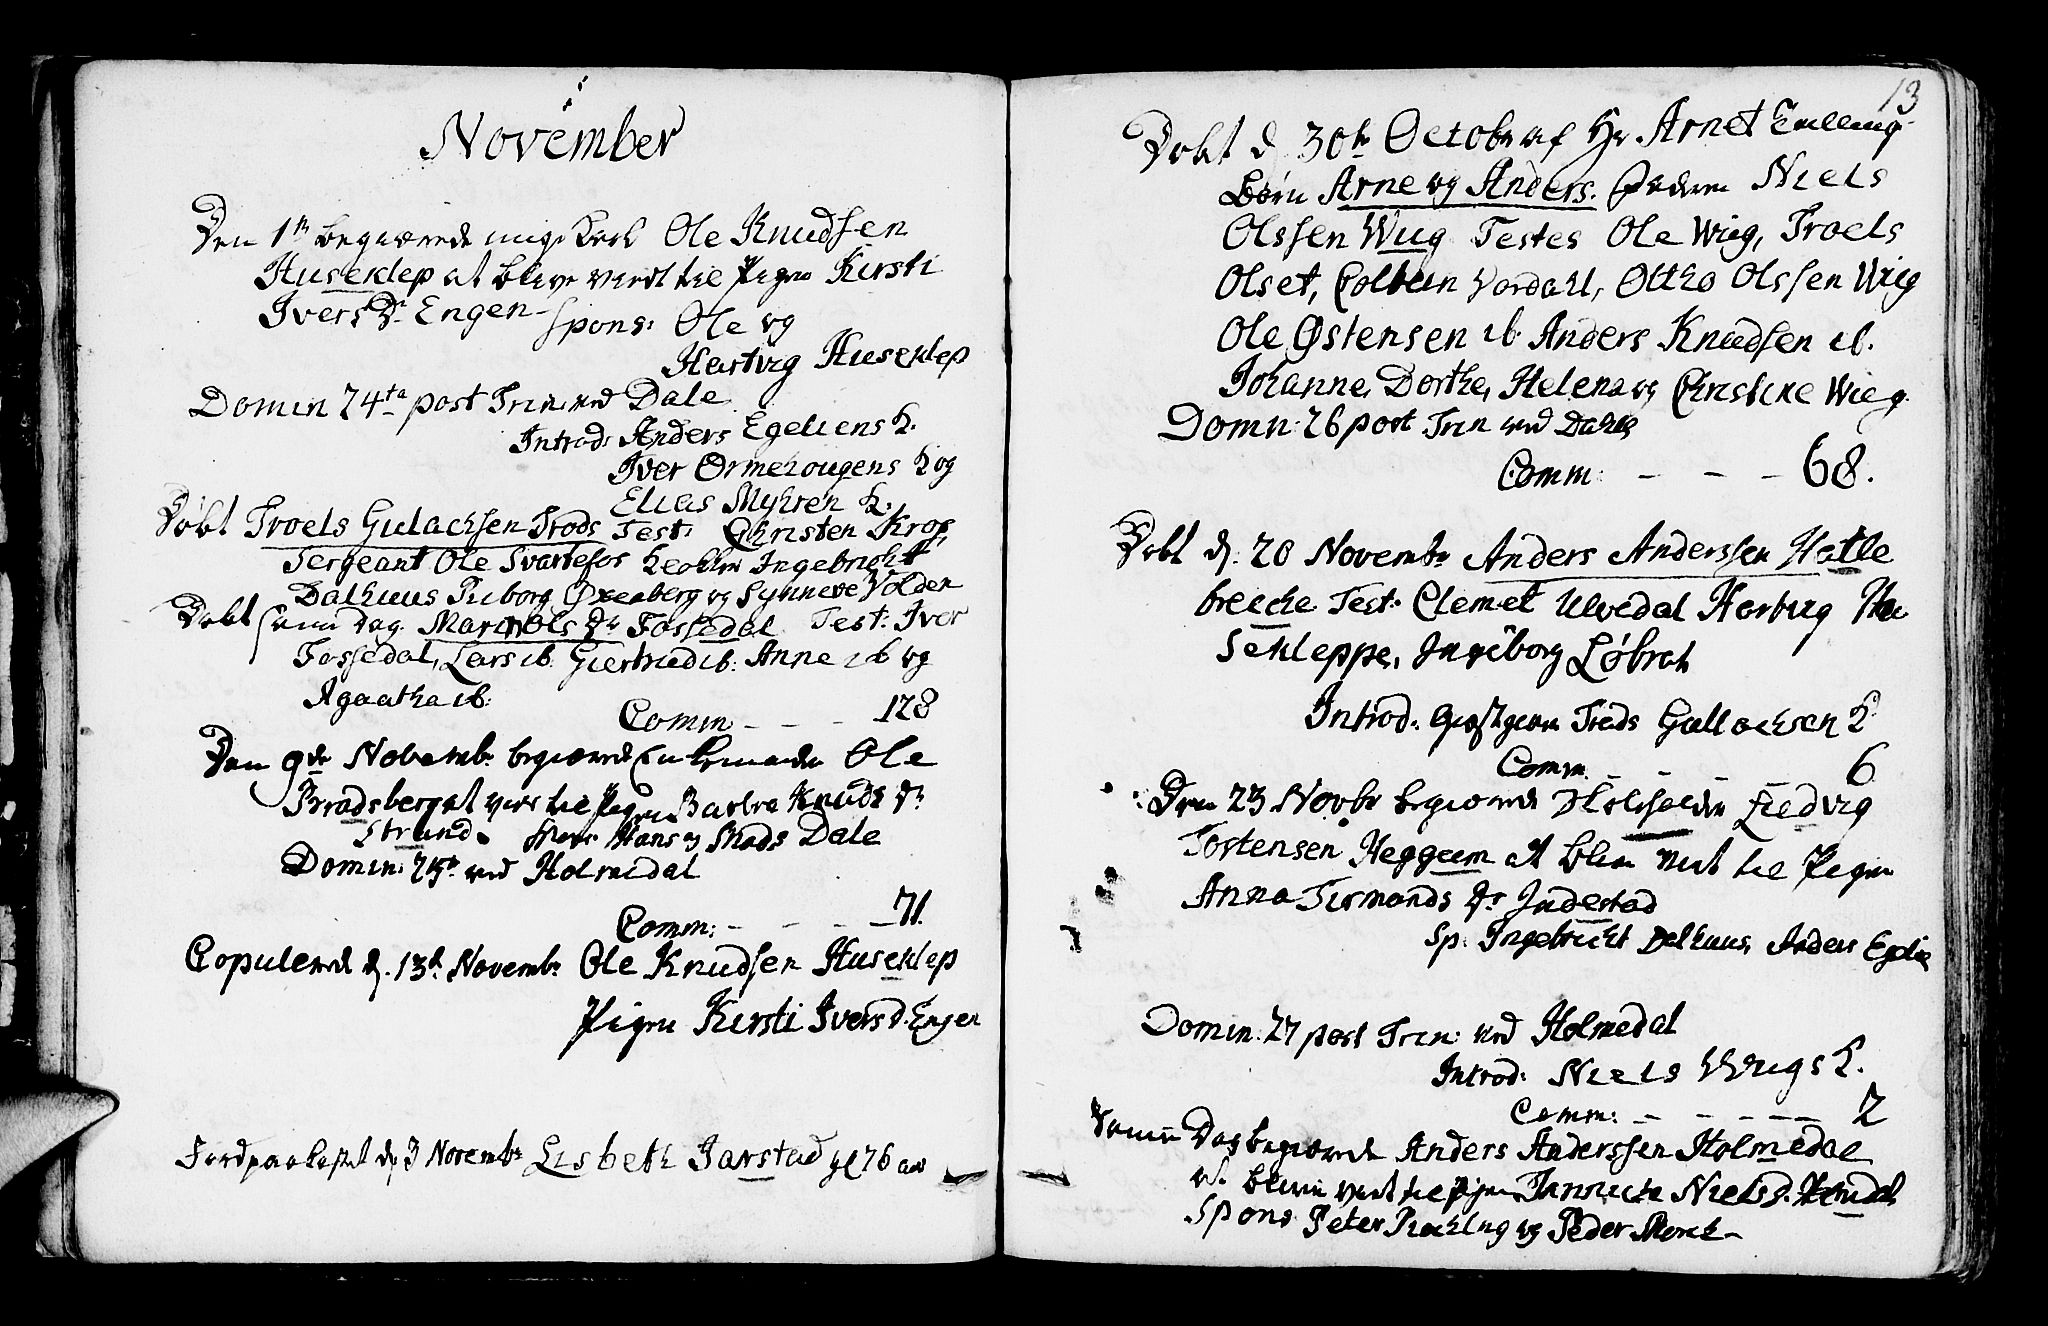 November
Den 1te begiærede unge Karl Ole Knudsen
Huseklep at blive viedt til Pigen Kirsti
Ivers Dr. Engen Spons: Ole og
Hartvig Huseklep
Domin 24ta post Trin: ved Dale
Introd: Anders Egeliens K.
Iver Ormehougens K og
Elias Myhren K.
Døbt Troels Gulachsen Trods Test: Christen Krog,
Sergeant Ole Svartefos Ingebricht
Dalhuus Siborg og Synneve Volden
Døbt samme Dag Maria Ols Dr Fossedal Test: Iver
Fossedal, Lars ib. Giertrud ib: Anne ib og
Agaatha ib:
Comm - - - 128
Den 9de Novembr begiærede Enkemanden Ole
Bradsberg at vies til Pigen Barbra Knuds Dr
Strand. Hans og Mads Dale
Domin: 25te ved Holmedal
Comm: - - - 71.
Copulered d. 13de Novembr Ole Knudsen Huseklep
Pigen Kirsti Ivers d. Engen
Jordpaakastet d. 3 Novembr Lisbeth Jarstad gl 76 aar
13
Døbt d. 30te Octobr af Hr Arnet Tvilling
Børn Arne og Anders. Faderen Niels
Olssen Wiig Testes Ole Wiig, Troels
Olset, Colbein Vardahl, Ottho Olssen Wiig
Ole Østensen ib. Anders Knudsen ib.
Johanne, Dorthe, Helena og Christine Wiig.
Domn: 26 post Trin ved Dahle
Comm: - - - 68.
Døbt d: 20 Novembr Anders Anderssen Hatle
breche Test: Clemet Ulvedal Herbug Hu
sekleppe, Ingeborg Løbrak
Introd: Trods Gullachsen K
Comm. - - - - 6
Den 23 Novbr begiærede Ledvig
Tostensen Heggeem at blive viet til Pigen
Anna Tormonds Dr Indestad
Sp: Ingebricht Dalhuus, Anders Eglie
Domin: 27 post Trin: ved Holmedal
Introd: Niels Wiigs K.
Comm: - - - - - 2
Samme Dag begiærede Anders Anderssen Holmedal
at blive viedt til Pigen Jannicha Niels d.
Spons Peter og Peder Monck